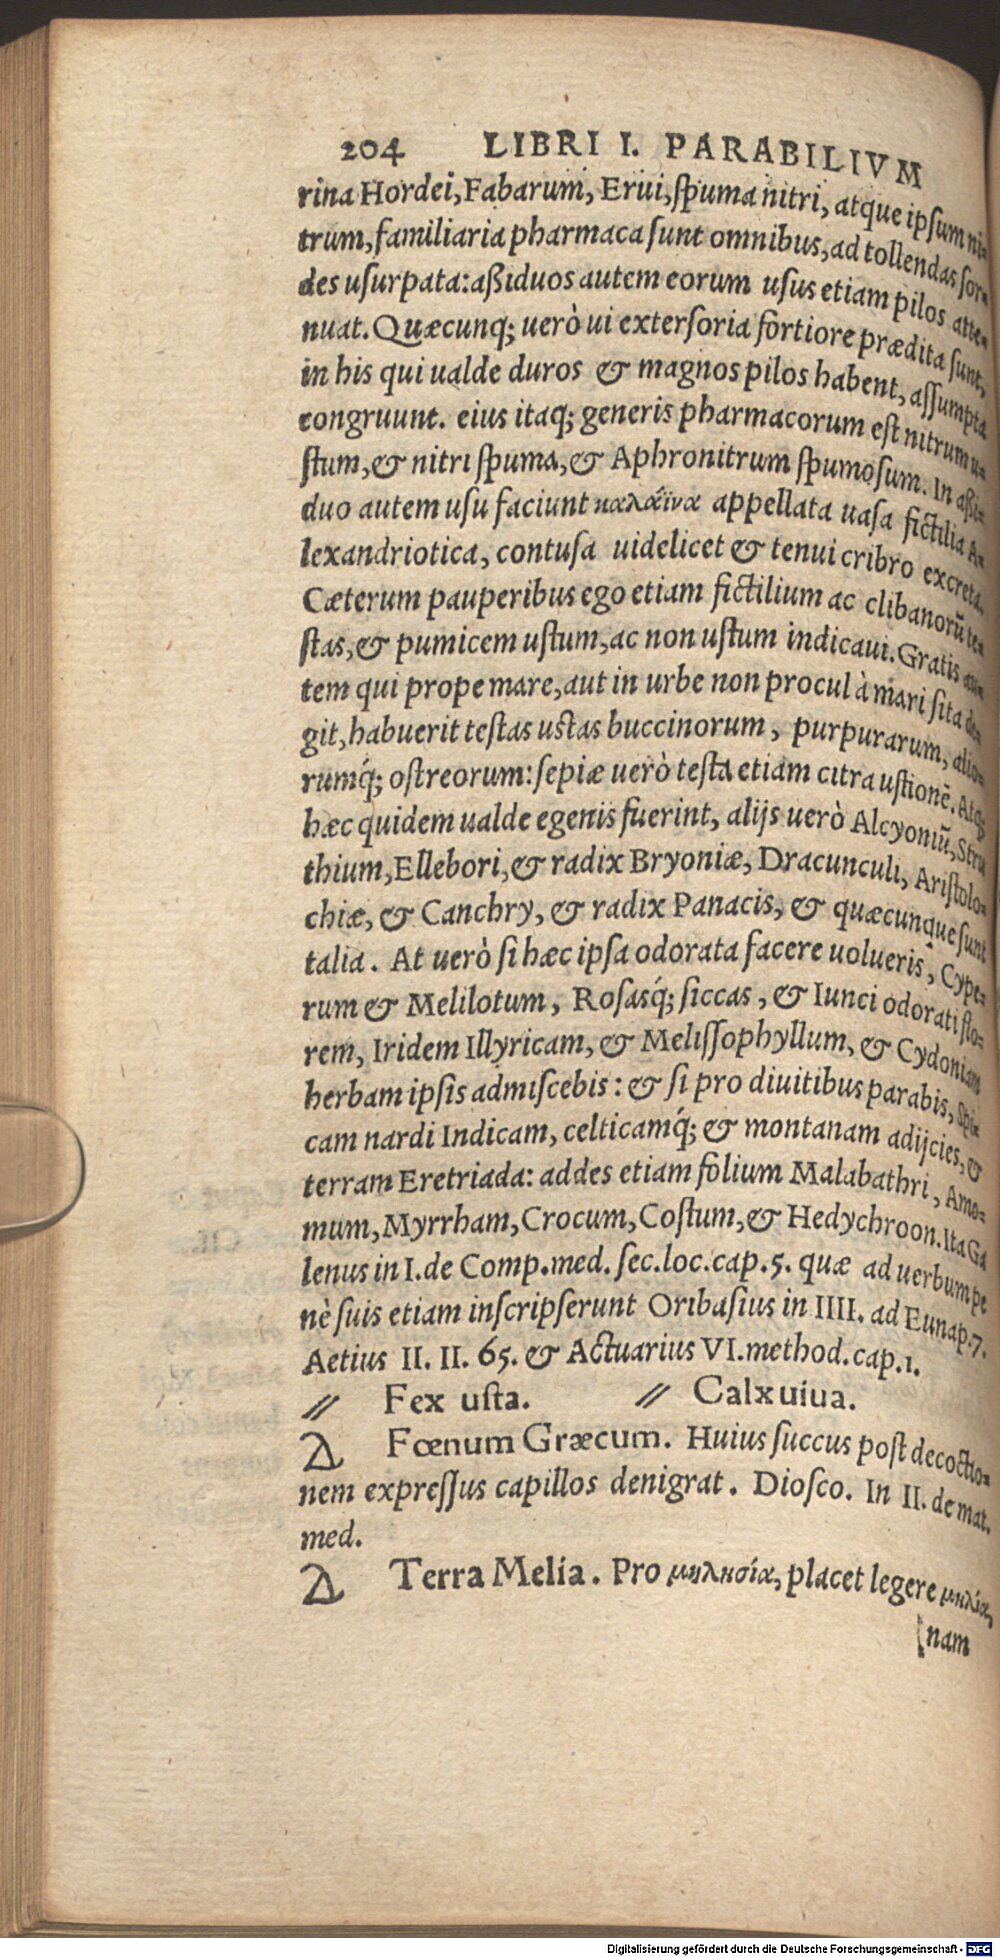 204 LIBRI I. PARABILIVM
rina Hordei, Fabarum, Erui, spuma nitri, atque ipsum ni-
trum, familiaria pharmaca sunt omnibus, ad tollendas sor-
des usurpata: aßiduos autem eorum usus etiam pilos atte-
nuat. Quæcunq; uerò ui extersoria fortiore prædita sunt,
in his qui ualde duros & magnos pilos habent, assumpta
congruunt. eius itaq; generis pharmacorum est nitrum u-
stum, & nitri spuma, & Aphronitrum spumosum. In aßi-
duo autem usu faciunt καλάϊνα appellata uasa fictilia A-
lexandriotica, contusa uidelicet & tenui cribro excreta.
Cæterum pauperibus ego etiam fictilium ac clibanorũ te-
stas, & pumicem ustum, ac non ustum indicaui. Gratis au-
tem qui prope mare, aut in urbe non procul à mari sita de-
git, habuerit testas ustas buccinorum, purpurarum, alio-
rumq́; ostreorum: sepiæ uerò testa etiam citra ustionẽ. Atq;
hæc quidem ualde egenis fuerint, alijs uerò Alcyoniũ, Stru
thium, Ellebori, & radix Bryoniæ, Dracunculi, Aristolo-
chiæ, & Canchry, & radix Panacis, & quæcunque sunt
talia. At uerò si hæc ipsa odorata facere uolueris, Cype-
rum & Melilotum, Rosasq́; siccas, & Iunci odorati flo-
rem, Iridem Illyricam, & Melissophyllum, & Cydoniam
herbam ipsis admiscebis: & si pro diuitibus parabis, Spi-
cam nardi Indicam, celticamq́; & montanam adijcies, &
terram Eretriada: addes etiam folium Malabathri, Amo-
mum, Myrrham, Crocum, Costum, & Hedychroon. Ita Ga
lenus in I. de Comp. med. sec. loc. cap. 5. quæ ad uerbum pe
nè suis etiam inscripserunt Oribasius in IIII. ad Eunap. 7.
Aetius II. II. 65. & Actuarius VI. method. cap. 1.
// Fex usta. // Calx uiua.
Fœnum Græcum. Huius succus post decoctio-
nem expressus capillos denigrat. Diosco. In II. de mat.
med.
Terra Melia. Pro μηλησία, placet legere μηλία,
nam
Digitalisierung gefördert durch die Deutsche Forschungsgemeinschaft - DFG